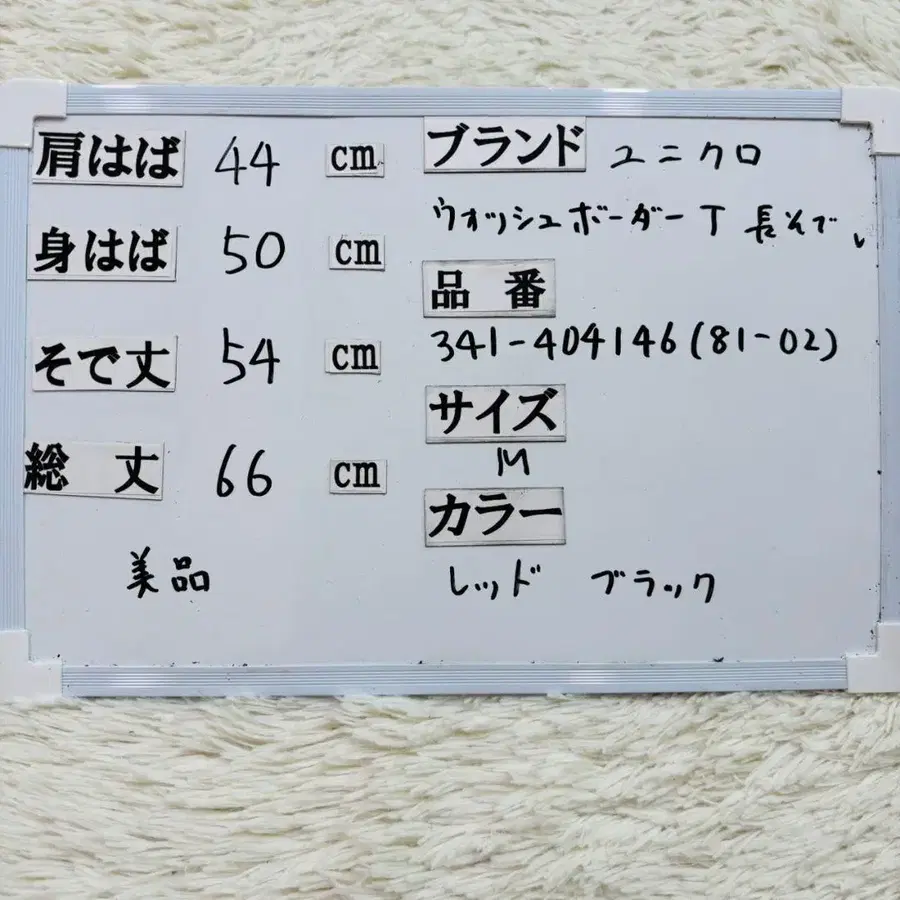 肩はば 44 cm
身はば 50 cm
そで丈 54 cm
総丈 66 cm
美品
ブランド ユニクロ
ウォッシュボーダーT 長そで
品番
341-404146(81-02)
サイズ
M
カラー
レッド ブラック